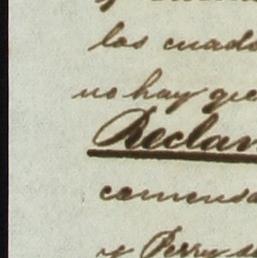 los cuad
no hay que
Reclam
comensa
y Perry s